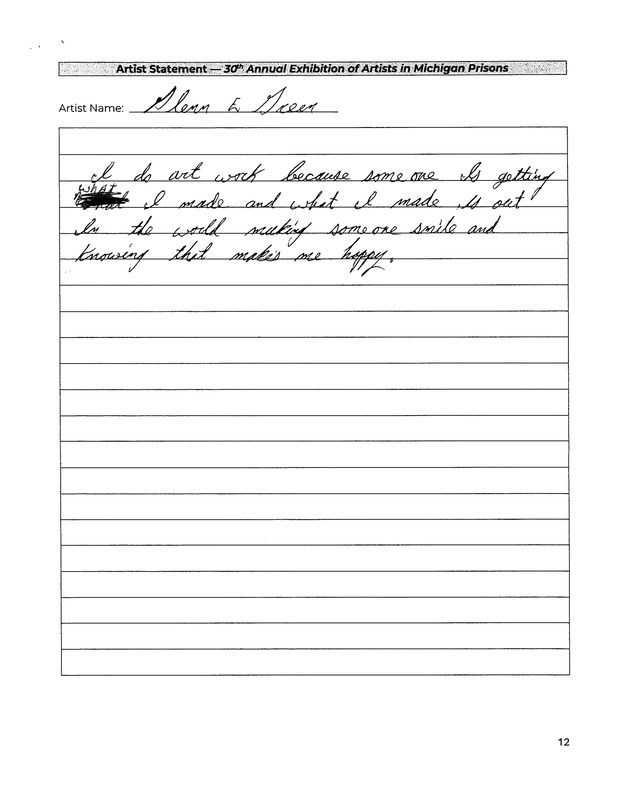 Artist Statement — 30th Annual Exhibition of Artists in Michigan Prisons
Artist Name: Glenn E Green
I do art work because some one Is getting
what
I made and what I made is out
In the world making some one smile and
Knowing that makes me happy.
12